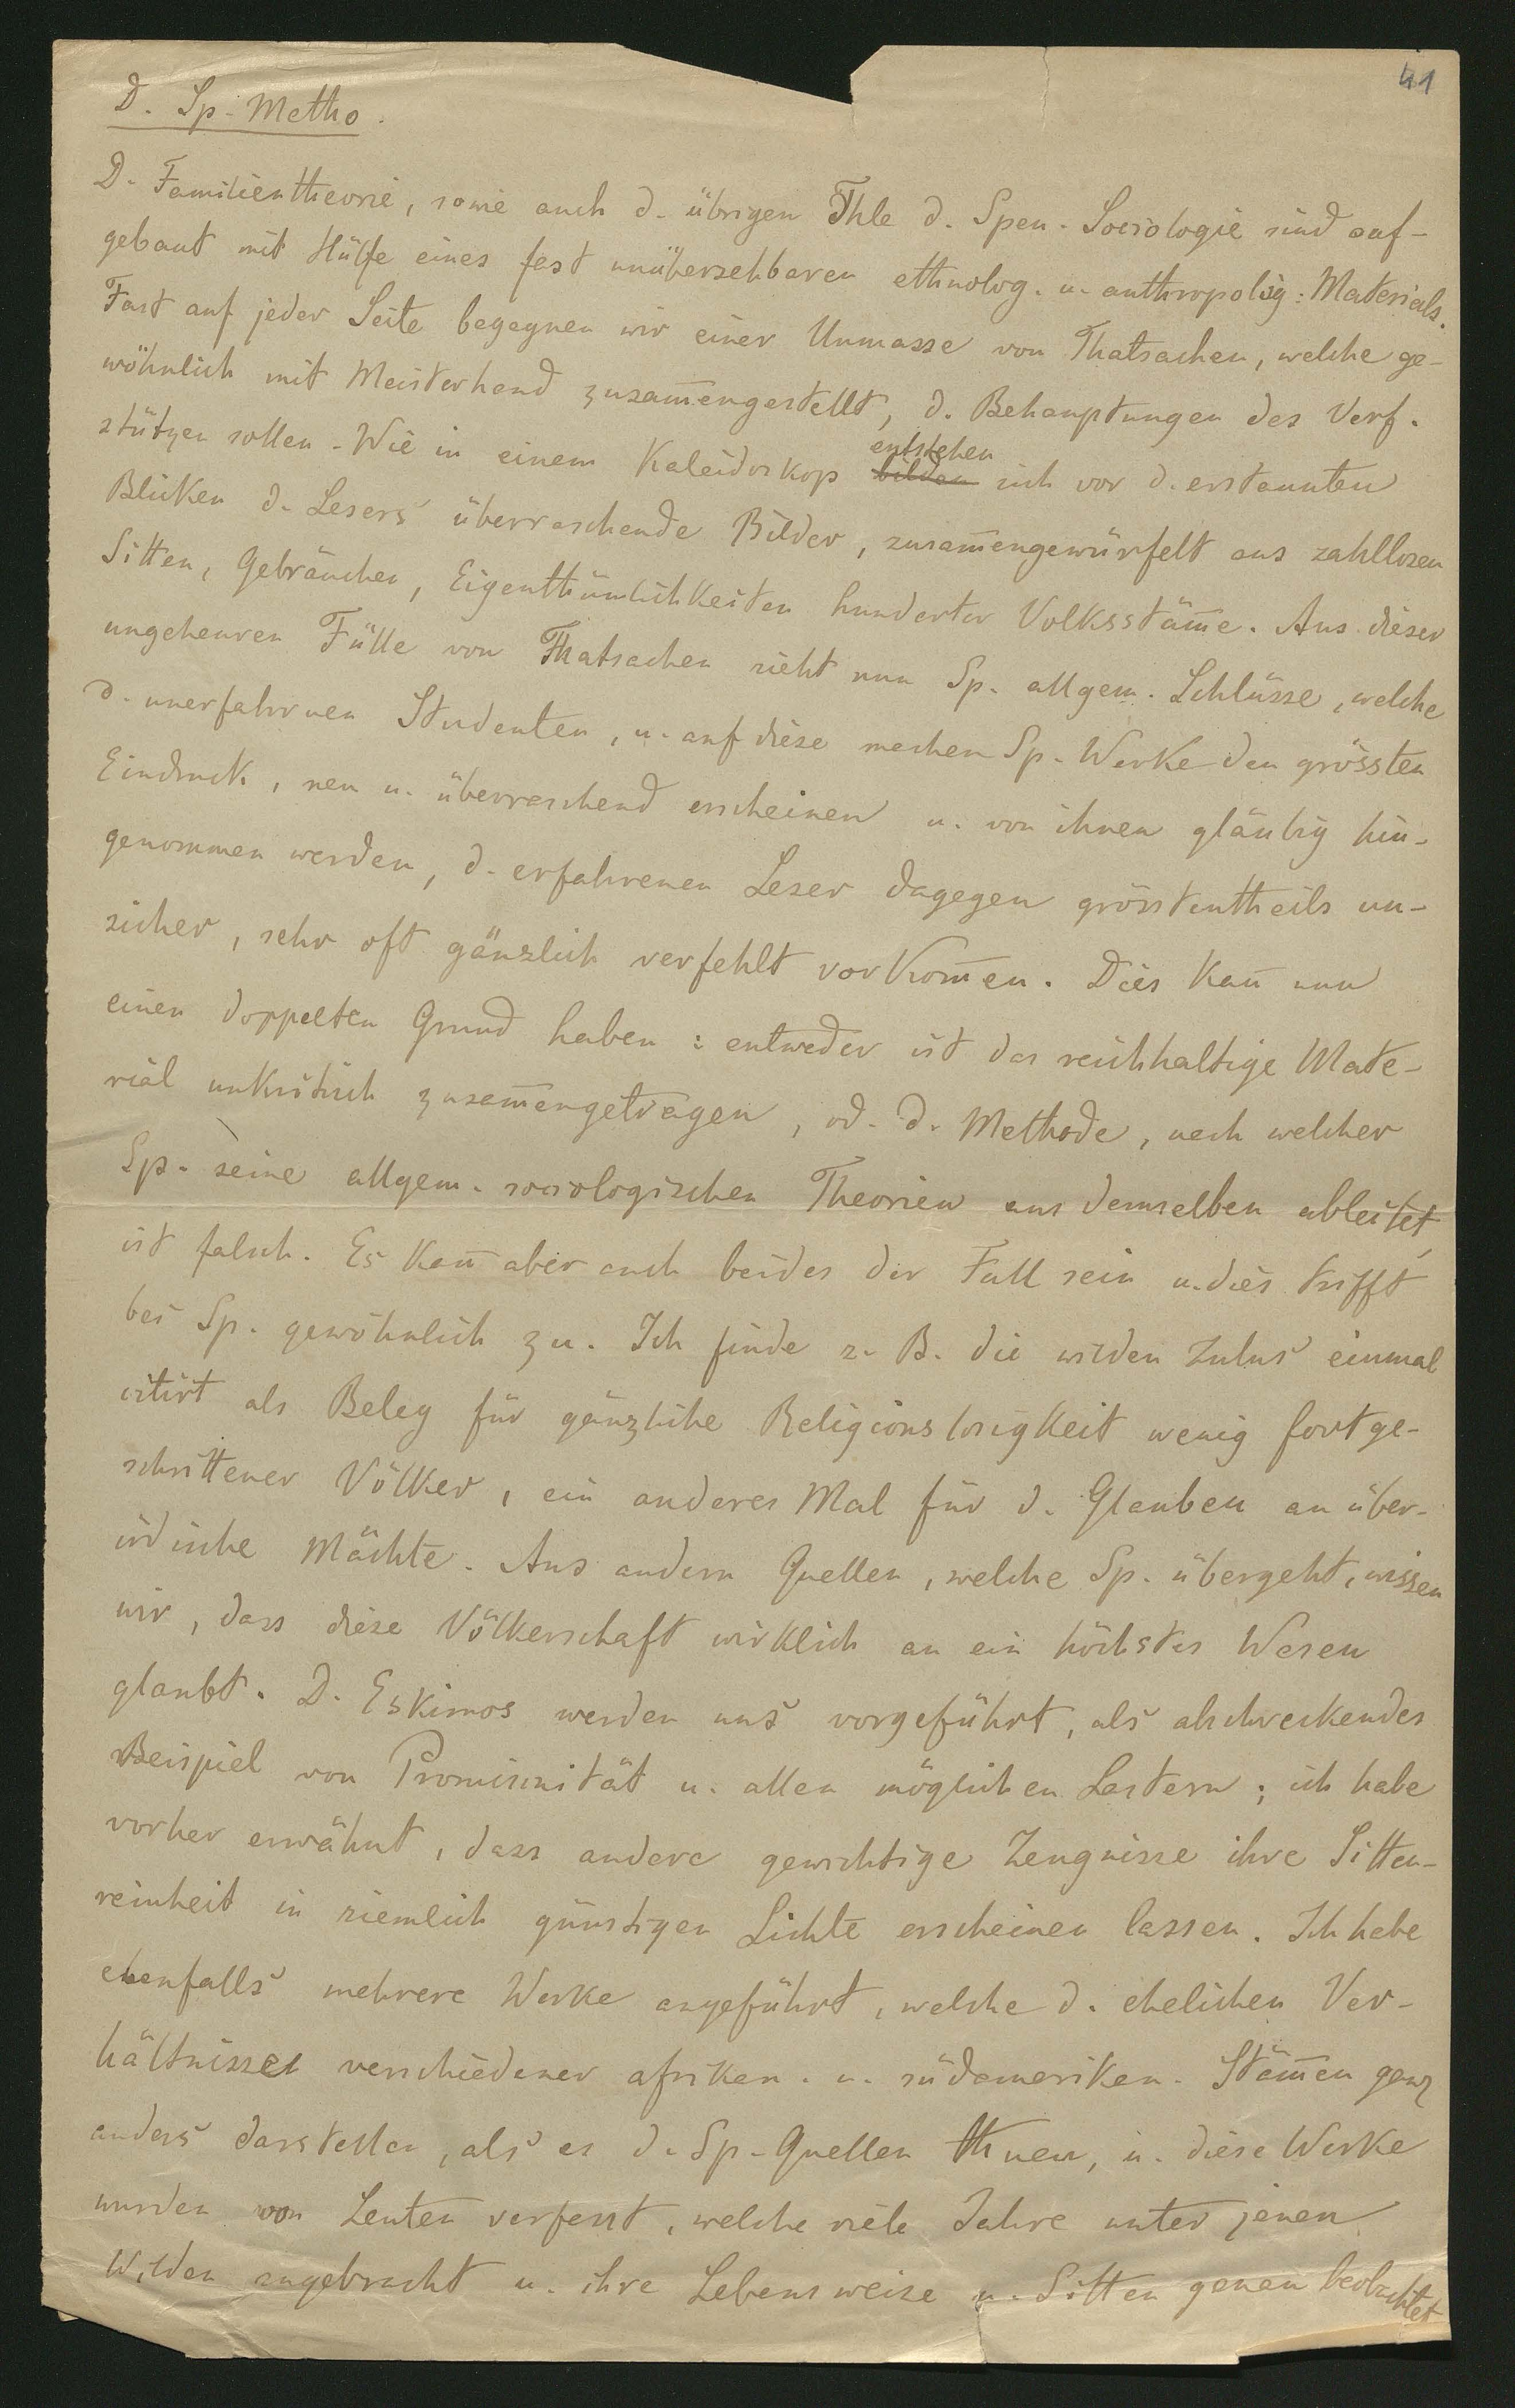 41
D. Sp. Metho.
D. Familientheorie, sowie auch d. übrigen Thle d. Spen. Sociologie sind auf-
gebaut mit Hülfe eines fast unübersehbaren ethnolog. u. anthropolog. Materials.
Fast auf jeder Seite begegnen wir einer Unmasse von Thatsachen, welche ge-
wöhnlich mit Meisterhand zusam̅engestellt, d. Behauptungen des Verf.
stützen sollen. Wie in einem Kaleidoskop bilden entstehen sich vor d. erstaunten
Blicken d. Lesers überraschende Bilder, zusam̅engewürfelt aus zahllosen
Sitten, Gebräuchen, Eigenthümlichkeiten hunderter Volksstäm̅e. Aus dieser
ungeheuren Fülle von Thatsachen zieht nun Sp. allgem. Schlüsse, welche
d. unerfahrnen Studenten, u. auf diese machen Sp. Werke den grössten
Eindruck, neu u. überraschend erscheinen u. von ihnen gläubig hin-
genommen werden, d. erfahrenen Leser dagegen grösstentheils un-
sicher, sehr oft gänzlich verfehlt vorkom̅en. Dies kan̅ nun
einen doppelten Grund haben: entweder ist das reichhaltige Mate-
rial unkritisch zusam̅engetragen, od. d. Methode, nach welcher
Sp. seine allgem. sociologischen Theorien aus demselben ableitet,
ist falsch. Es kan̅ aber auch beides der Fall sein u. dies trifft
bei Sp. gewöhnlich zu. Ich finde z. B. die wilden Zulus einmal
citirt als Beleg für gänzliche Religionslosigkeit wenig fortge-
schrittener Völker, ein anderes Mal für d. Glauben an über-
irdische Mächte. Aus andern Quellen, welche Sp. übergeht, wissen
wir, dass diese Völkerschaft wirklich an ein höchstes Wesen
glaubt. D. Eskimos werden uns vorgeführt, als abschreckendes
Beispiel von Promiscuität u. allen möglichen Lastern; ich habe
vorher erwähnt, dass andere gewichtige Zeugnisse ihre Sitten-
reinheit in ziemlich günstigen Lichte erscheinen lassen. Ich habe
ebenfalls mehrere Werke angeführt, welche d. ehelichen Ver-
hältnisse verschiedener afrikan. u. südamerikan. Stäm̅en ganz
anders darstellen, als es d. Sp. Quellen thuen, u. diese Werke
wurden von Leuten verfasst, welche viele Jahre unter jenen
Wilden zugebracht u. ihre Lebensweise u. Sitten genau beobachtet